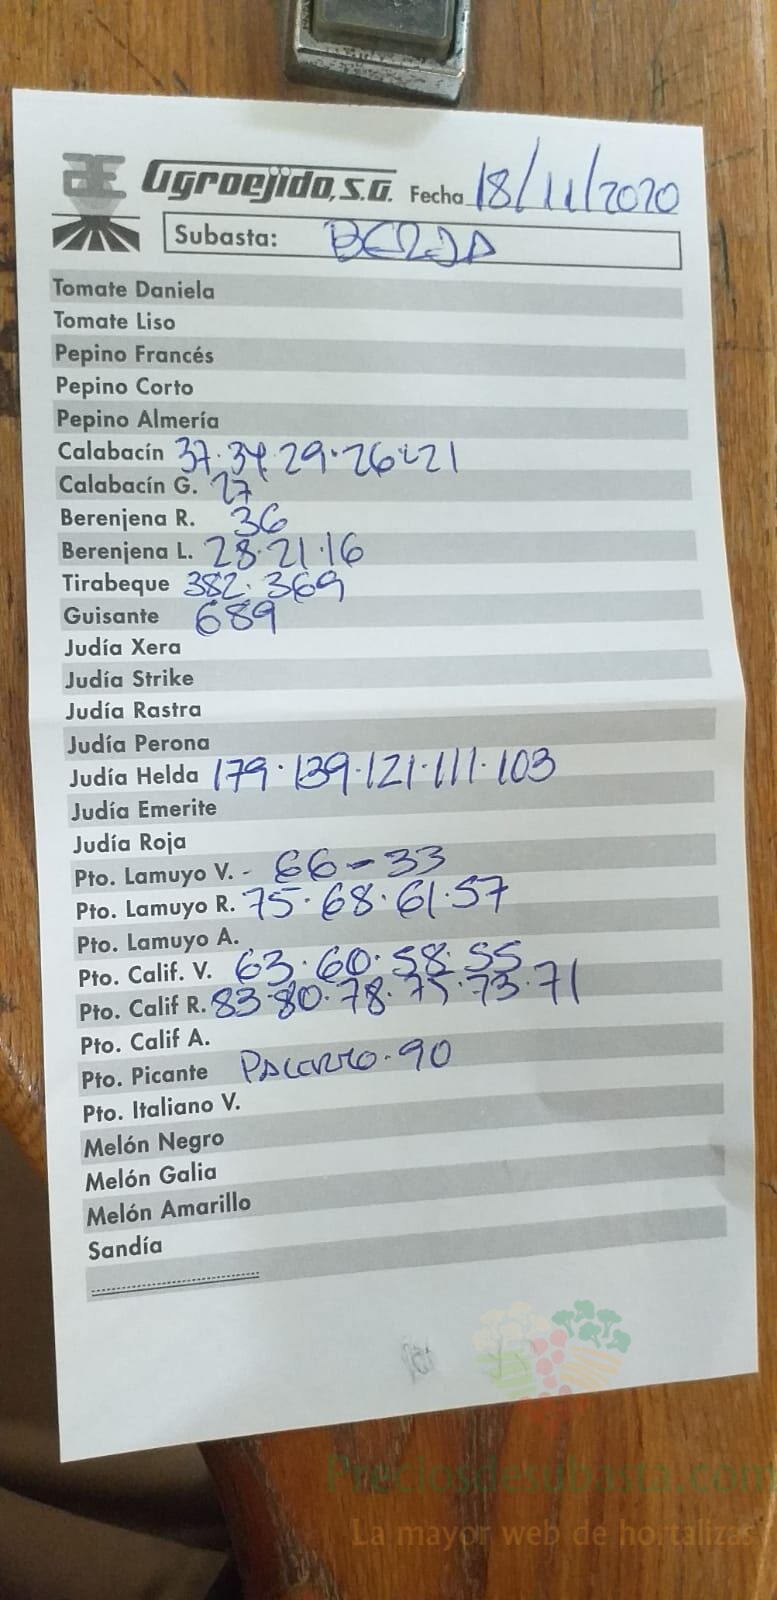 Agroejido, S.A. Fecha 18/11/2020
Subasta: BERJA
Tomate Daniela
Tomate Liso
Pepino Francés
Pepino Corto
Pepino Almería
Calabacín 37·34·29·26·21
Calabacín G. 27
Berenjena R. 36
Berenjena L. 28·21·16
Tirabeque 382·369
Guisante 689
Judía Xera
Judía Strike
Judía Rastra
Judía Perona
Judía Helda 179·139·121·111·103
Judía Emerite
Judía Roja
Pto. Lamuyo V.- 66-33
Pto. Lamuyo R. 75·68·61·57
Pto. Lamuyo A.
Pto. Calif. V. 63·60·58·55
Pto. Calif R. 83·80·78·75·73·71
Pto. Calif A.
Pto. Picante PALERMO·90
Pto. Italiano V.
Melón Negro
Melón Galia
Melón Amarillo
Sandía
Preciosdesubasta.com
La mayor web de hortalizas